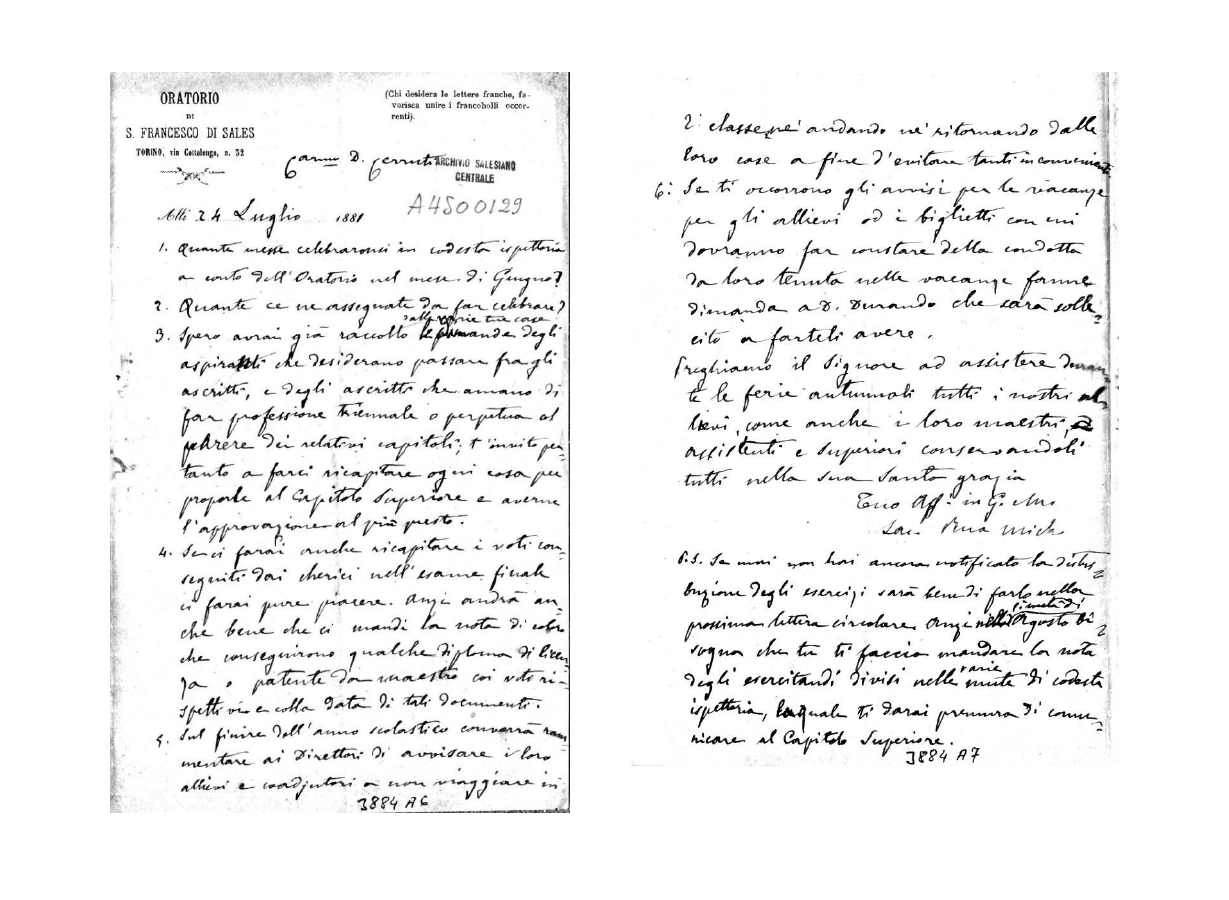 ORATORIO
DI
S. FRANCESCO DI SALES
TORINO, via Cottolengo, n. 32
(Chi desidera le lettere franche, fa-
vorisca unire i francobolli occor-
renti).
Carmo D. Cerruti
ARCHIVIO SALESIANO
CENTRALE
A4500129
Alli 24 Luglio 1881
1. Quante messe celebraronsi in codesta ispettoria
a conto dell'Oratorio nel mese di Giugno?
2. Quante ce ne assegnate da far celebrare?
dalle varie tue case
3. Spero avrai già raccolto le domande degli
aspiranti che desiderano passare fra gli
ascritti, e degli ascritti che amano di
far professione triennale o perpetua col
parere dei relativi capitoli; t'invito per=
tanto a farci ricapitare ogni cosa per
proporle al Capitolo Superiore e averne
l'approvazione al più presto.
4. Se ci farai anche ricapitare i voti con=
seguiti dai cherici nell'esame finale
ci farai pure piacere. Anzi andrà an=
che bene che ci mandi la nota di coloro
che conseguirono qualche diploma di licen=
za o patente da maestro coi voti ri=
spettivi e colla data di tali documenti.
5. Sul finire dell'anno scolastico converrà ram=
mentare ai Direttori di avvisare i loro
allievi e coadjutori a non viaggiare in
3884 A6
2ª classe nè andando nè ritornando dalle
loro case a fine d'evitare tanti inconvenienti.
6: Se ti occorrono gli avvisi per le vacanze
per gli allievi od i biglietti con cui
dovranno far constare della condotta
da loro tenuta nelle vacanze fanne
dimanda a D. Durando che sarà solle=
cito a farteli avere.
Preghiamo il Signore ad assistere duran=
te le ferie autunnali tutti i nostri al=
lievi, come anche i loro maestri,
assistenti e Superiori conservandoli
tutti nella sua Santa grazia
Tuo Aff. in G. e M.
Sac. Rua Mich
P.S. Se mai non hai ancora notificato la distri=
buzione degli esercizi sarà bene di farlo nella
prossima lettera circolare. Anzi
Agosto bi=
sogna che tu ti faccia mandare la nota
degli esercitandi divisi nelle varie mute di codesta
ispettoria, la quale ti darai premura di comu=
nicare al Capitolo Superiore.
3884 A7